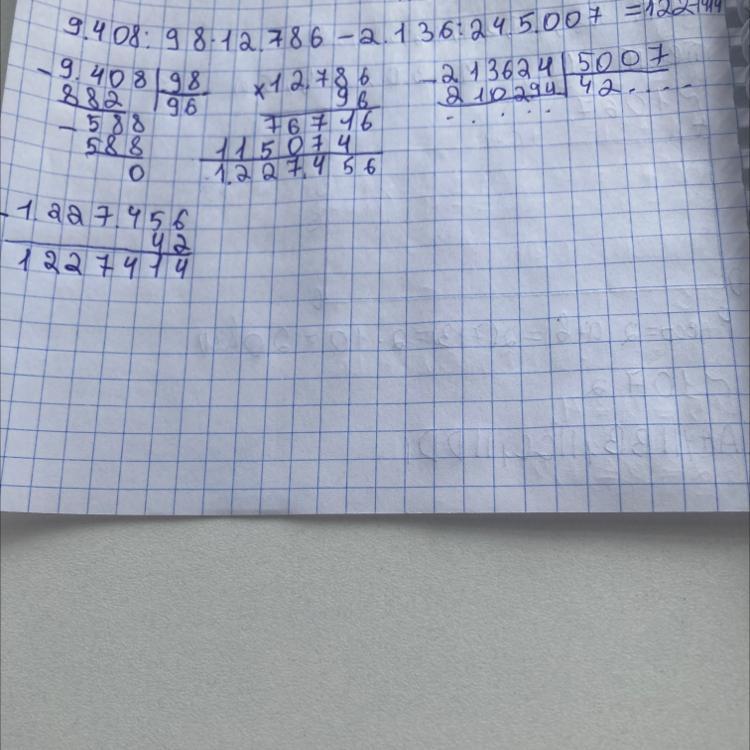 9.408:98·12.786-2.136:24.5.007=1227414
-9.408|98
882 |96
-588
588
0
×12.786
96
76716
115074
1.227.456
-213624|5007
210294|42....
.....
-1.227.456
42
1227414